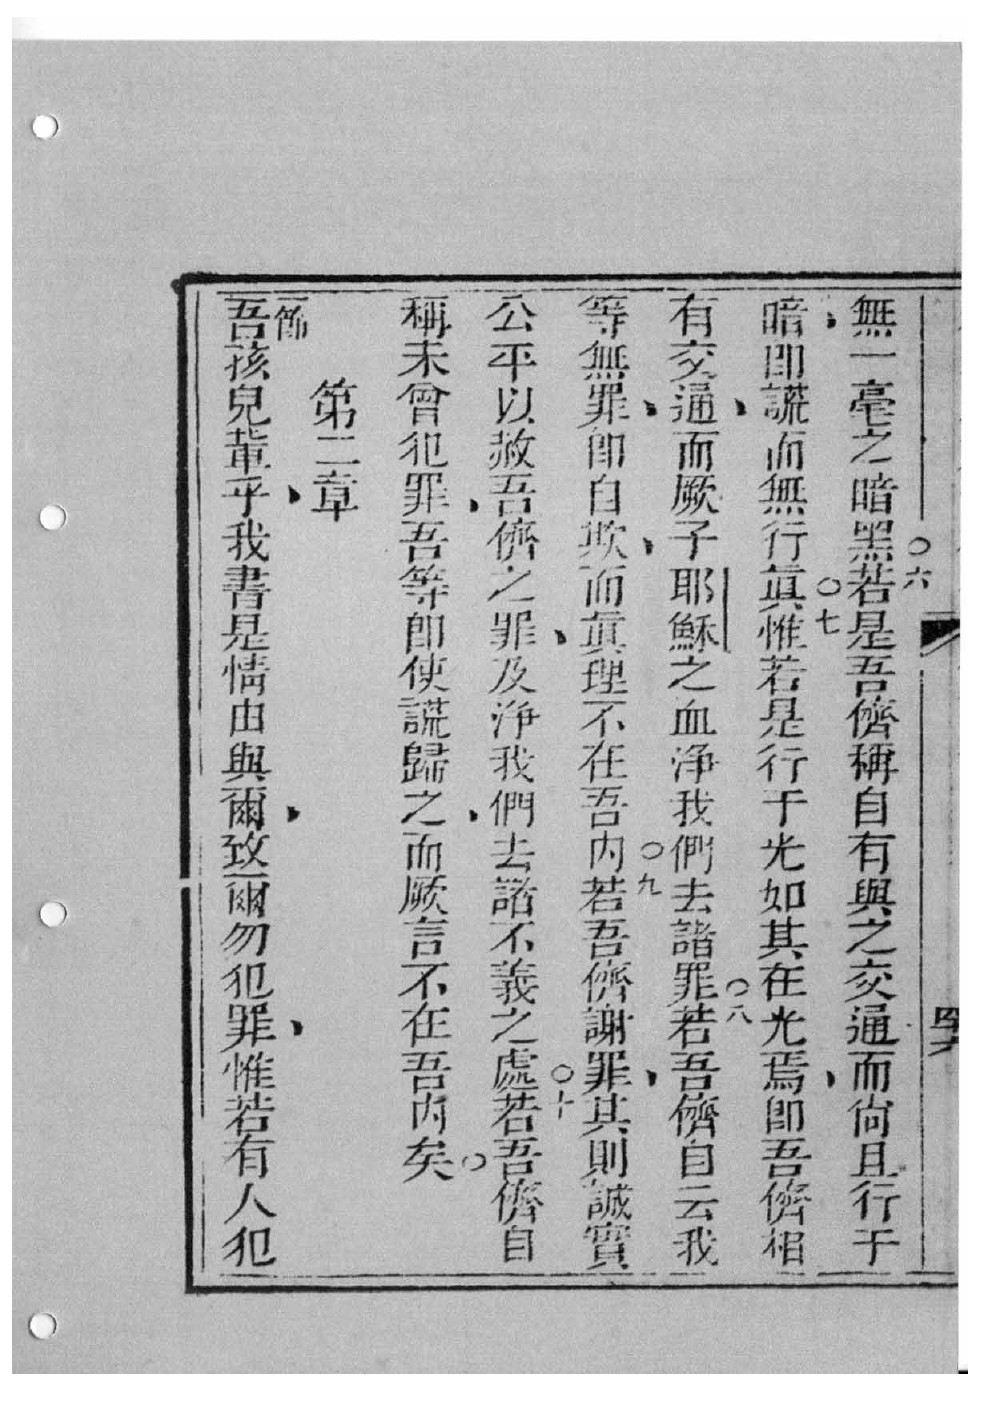 無一毫之暗黑○六若是吾儕稱自有與之交通而尙且行于
暗、卽謊而無行眞○七惟若是行于光如其在光焉、卽吾儕相
有交通、而厥子耶穌之血淨我們去諸罪○八若吾儕自云我
等無罪、卽自欺、而眞理不在吾內○九若吾儕謝罪、其則誠實
公平以赦吾儕之罪、及淨我們去諸不義之處○十若吾儕自
稱未曾犯罪、吾等卽使謊歸之、而厥言不在吾內矣○
第二章
一節吾孩兒輩乎、我書是情由與爾、致爾勿犯罪、惟若有人犯